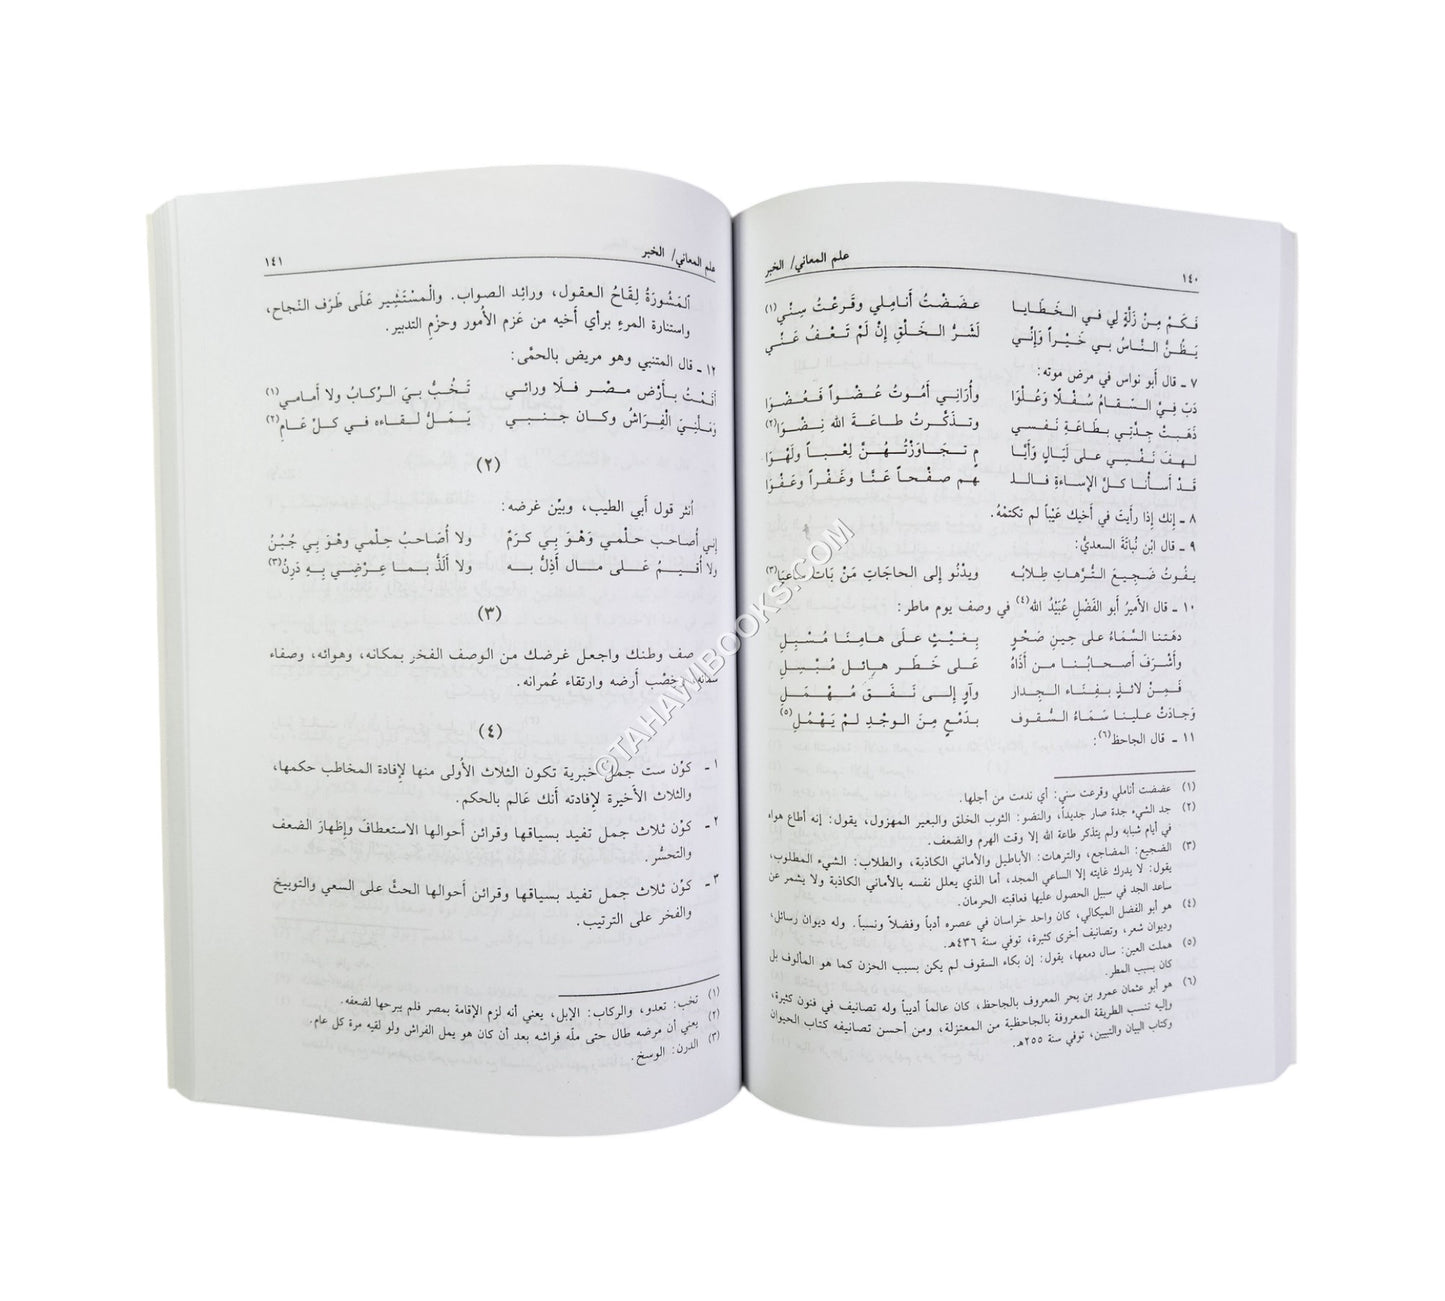 علم المعاني/ الخبر
١٤٠
فَكَمْ مِنْ زَلَّةٍ لِي في الخَطَايا عضَضْتُ أَنامِلي وقَرعْتُ سِنِّي(١)
يَظُنُّ النَّاسُ بي خَيْراً وَإِنِّي لَشَرُّ الخَلْقِ إِنْ لَمْ تَعْفُ عَنِّي
٧ ـ قال أبو نواس في مرض موته:
دَبّ فِيَّ السَّقامُ سُفْلًا وَعُلْوَا وأُرَانِي أَمُوتُ عُضْواً فَعُضْوَا
ذَهَبتْ جِدَّتِي بطَاعَةِ نَفْسي وتذكَّرتُ طاعَةَ الله نِضْوَا(٢)
لهفَ نَفْسِي على لَيَالٍ وَأَيَّا مٍ تجاوَزْتُهُنَّ لِعْباً ولَهْوَا
قَدْ أسأْنا كلَّ الإساءةِ فالـ ـهم صفْحاً عنَّا وغَفْراً وعَفْوَا
٨ ـ إنك إذا رأَيتَ في أخيك عَيْباً لم تكتمْهُ.
٩ ـ قال ابْن نُباتَةَ السعديُّ:
يفُوتُ ضَجِيعَ التُّرَّهاتِ طِلابُه ويدْنُو إلى الحاجَاتِ مَنْ بَاتَ ساعِيَا(٣)
١٠ ـ قال الأميرُ أبو الفَضْلِ عُبَيْدُ الله(٤) في وصف يوم ماطر:
دهَتنا السَّماءُ على حِينِ صَحْوٍ بِغَيْثٍ علَى هامِنَا مُسْبِلِ
وأَشْرَفَ أَصحابُنا من أَذَاهُ عَلى خَطَرٍ هائِلٍ مُبْسِلِ
فَمِنْ لائذٍ بفِناءِ الجِدار وآوٍ إلى نَفَقٍ مُهْمَلِ
وَجادَتْ علينا سَمَاءُ السُّقوف بدَمْعٍ مِنَ الوجْدِ لمْ يَهْمُلِ(٥)
١١ ـ قال الجاحظ(٦):
(١) عضضت أناملي وقرعت سني: أي ندمت من أجلها.
(٢) جد الشيء جدة صار جديداً، والنضو: الثوب الخلق والبعير المهزول، يقول: إنه أطاع هواه
في أيام شبابه ولم يتذكر طاعة الله إلا وقت الهرم والضعف.
(٣) الضجيع: المضاجع، والترهات: الأباطيل والأماني الكاذبة، والطلاب: الشيء المطلوب،
يقول: لا يدرك غايته إلا الساعي المجد، أما الذي يعلل نفسه بالأماني الكاذبة ولا يشمر عن
ساعد الجد في سبيل الحصول عليها فعاقبته الحرمان.
(٤) هو أبو الفضل الميكالي، كان واحد خراسان في عصره أدباً وفضلاً ونسباً. وله ديوان رسائل،
وديوان شعر، وتصانيف أخرى كثيرة، توفي سنة ٤٣٦هـ.
(٥) هملت العين: سال دمعها، يقول: إن بكاء السقوف لم يكن بسبب الحزن كما هو المألوف بل
كان بسبب المطر.
(٦) هو أبو عثمان عمرو بن بحر المعروف بالجاحظ، كان عالماً أديباً وله تصانيف في فنون كثيرة،
وإليه تنسب الطريقة المعروفة بالجاحظية من المعتزلة، ومن أحسن تصانيفه كتاب الحيوان
وكتاب البيان والتبيين، توفي سنة ٢٥٥هـ.
علم المعاني/ الخبر
١٤١
ألمَشُورَةُ لِقَاحُ العقول، ورائِد الصواب. والْمسْتَشِير عَلَى طَرَفِ النَجاح،
واستنارة المرءِ برأي أخيه من عَزم الأمور وحزْمِ التدبير.
١٢ ـ قال المتنبي وهو مريض بالحمَّى:
أَقمْتُ بأَرْض مصْر فلَا ورائي تَخُبُّ بيَ الرِّكابُ ولا أمامي(١)
وَملَّنِيَ الْفِرَاشُ وكان جنبي يَمَلُّ لقاءه في كلّ عَامِ(٢)
(٢)
أنثر قول أبي الطيب، وبيّن غرضه:
إنِّي أُصاحب حلْمي وَهْوَ بي كرَمٌ ولا أُصَاحبُ حِلْمي وهْوَ بِي جُبْنُ
ولا أُقيمُ عَلى مال أَذِلُّ به ولا ألَذُّ بما عِرْضِي بِهِ دَرِنُ(٣)
(٣)
صف وطنك واجعل غرضك من الوصف الفخر بمكانه، وهوائه، وصفاء
سمائه وخصْب أرضه وارتقاء عُمرانه.
(٤)
١ ـ كوّن ست جمل خبرية تكون الثلاث الأُولى منها لإفادة المخاطب حكمها،
والثلاث الأخيرة لإفادته أنك عَالم بالحكم.
٢ ـ كوّن ثلاث جمل تفيد بسياقها وقرائن أحوالها الاستعطافَ وإظهارَ الضعف
والتحسُّر.
٣ ـ كوّن ثلاث جمل تفيد بسياقها وقرائن أحوالها الحثَّ على السعي والتوبيخ
والفخر على الترتيب.
(١) تخب: تعدو، والركاب: الإبل، يعني أنه لزم الإقامة بمصر فلم يبرحها لضعفه.
(٢) يعني أن مرضه طال حتى ملّه فراشه بعد أن كان هو يمل الفراش ولو لقيه مرة كل عام.
(٣) الدرن: الوسخ.
©TAHAWIBOOKS.COM